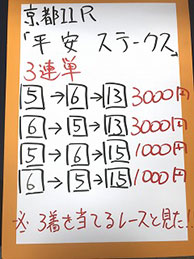 京都11R
「平安 ステークス」
3連単
5→6→13 3000円
6→5→13 3000円
5→6→15 1000円
6→5→15 1000円
※3着を当てるレースと見た!